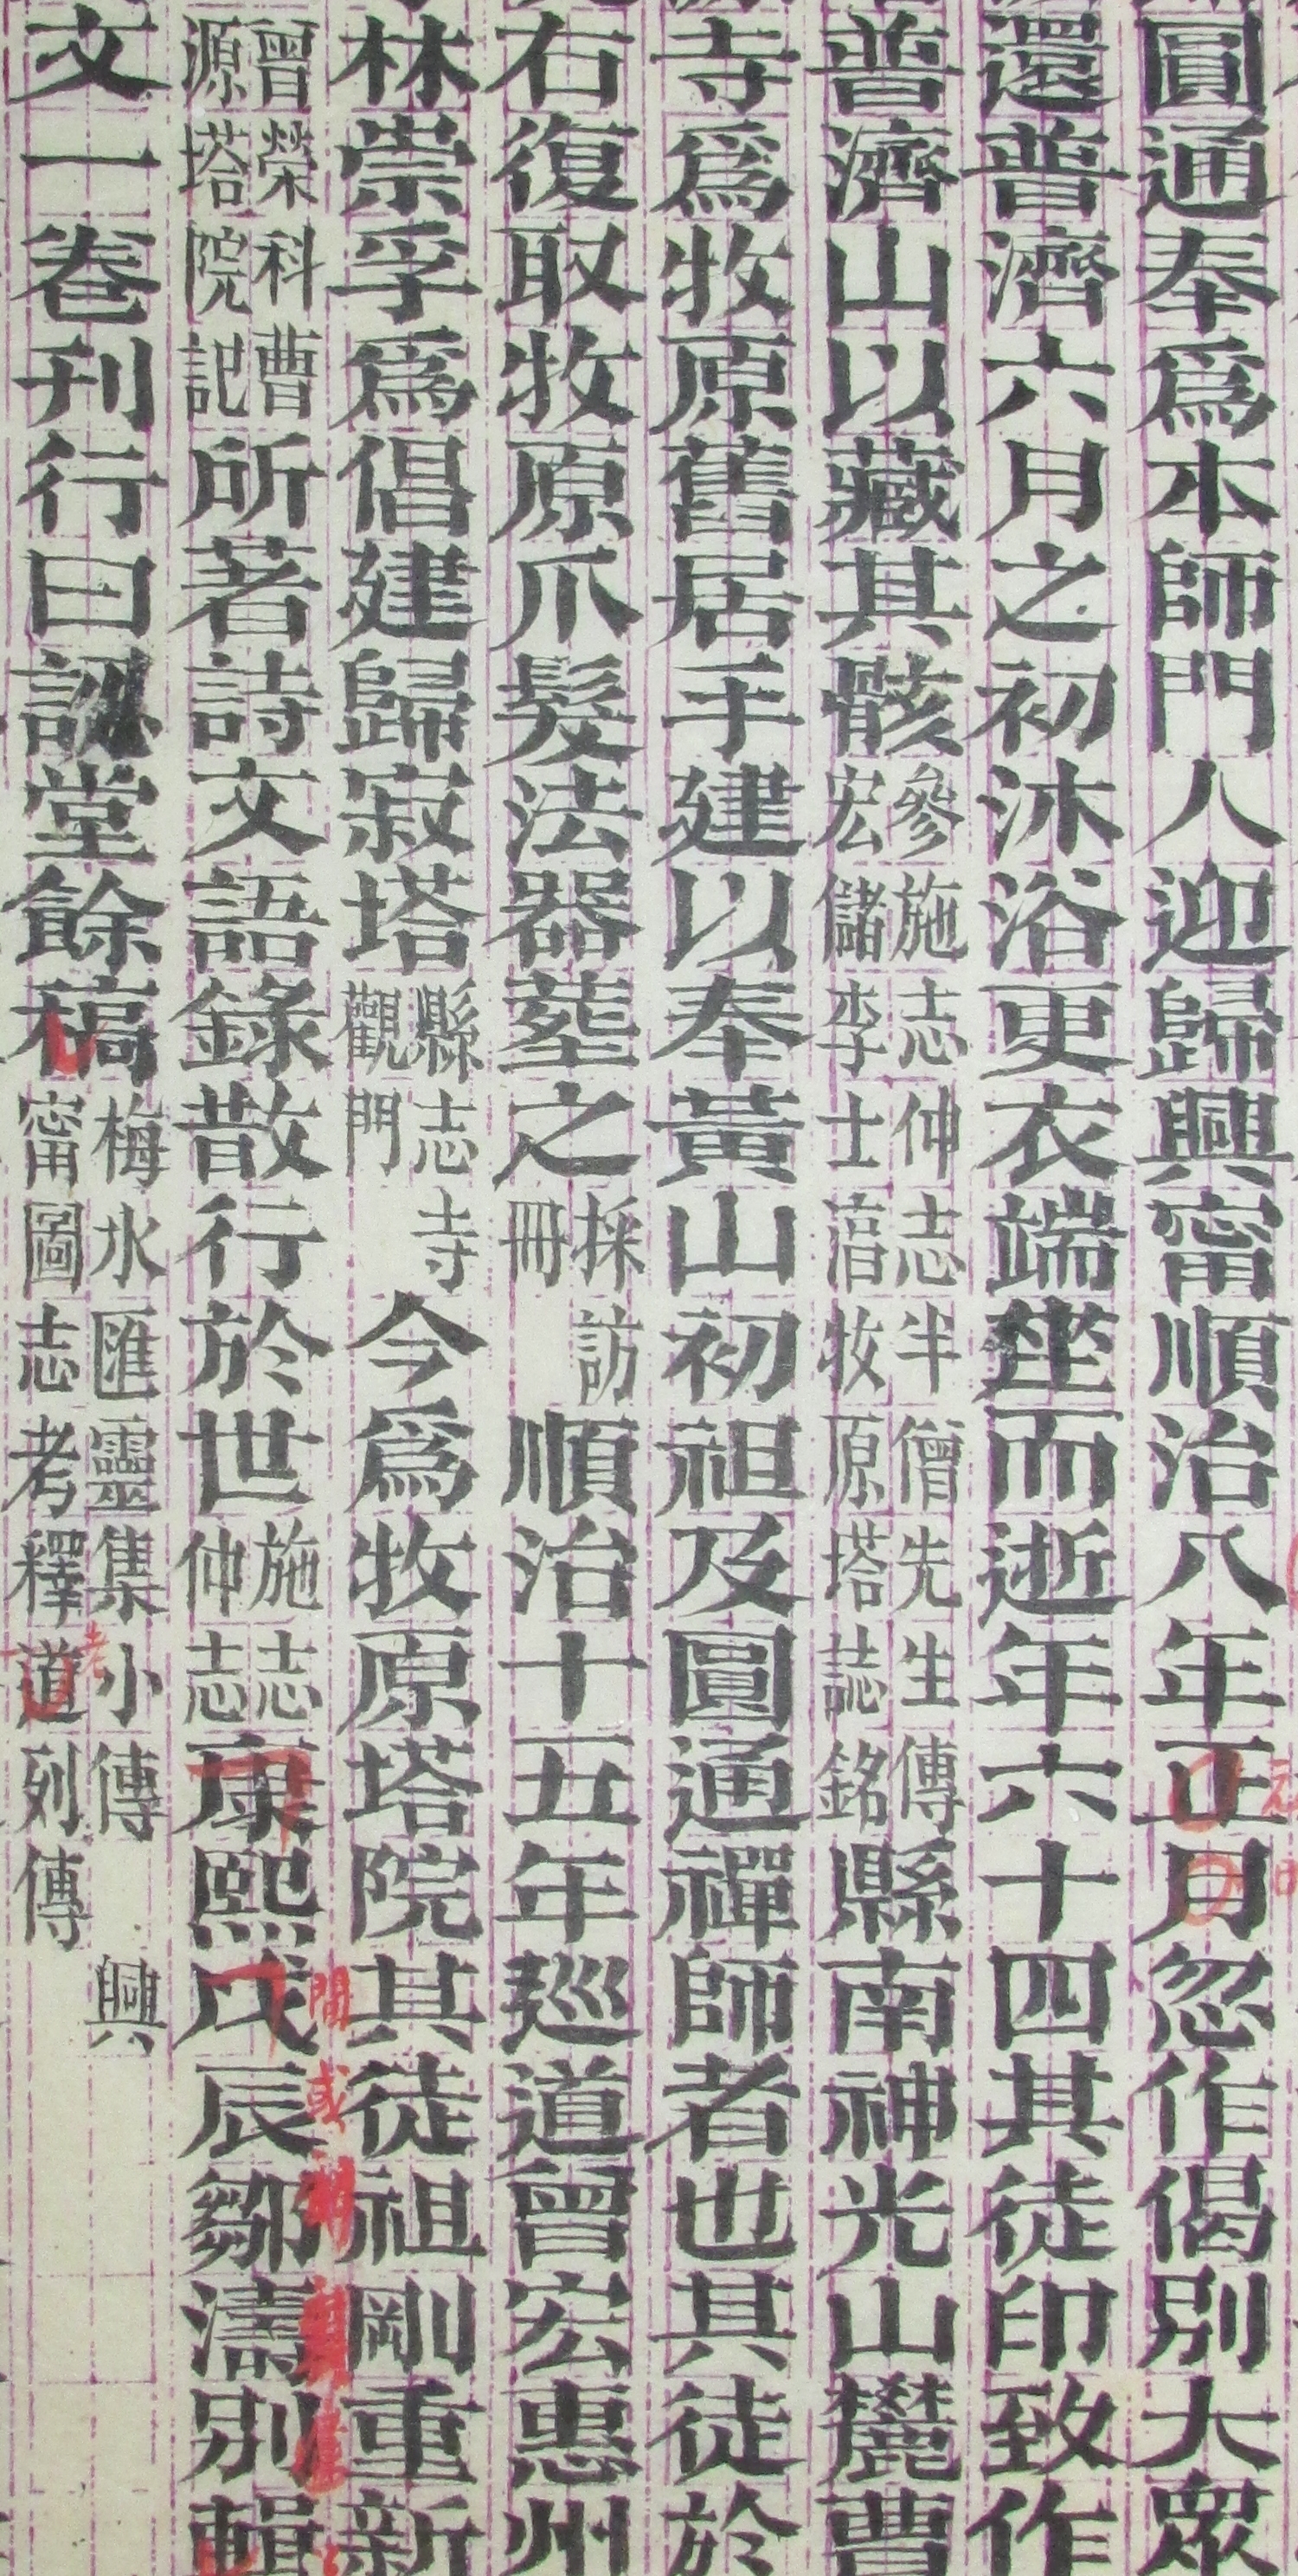 圓通奉爲本師門人迎歸興甯順治八年正月忽作偈別大眾
還普濟六月之初沐浴更衣端坐而逝年六十四其徒印致作
普濟山以藏其骸參施志仲志半僧先生傳宏儲李士涪牧原塔誌銘縣南神光山麓曹
寺爲牧原舊居手建以奉黃山初祖及圓通禪師者也其徒於
右復取牧原爪髮法器葬之採訪冊順治十五年巡道曾宏惠州
林崇孚爲倡建歸寂塔縣志寺觀門今爲牧原塔院其徒祖剛重新
曾榮科曹源塔院記所著詩文語錄散行於世施志仲志康熙戊辰鄒濤別輯
文一卷刊行曰堂餘稿梅水匯靈集小傳興甯圖志考釋道列傳